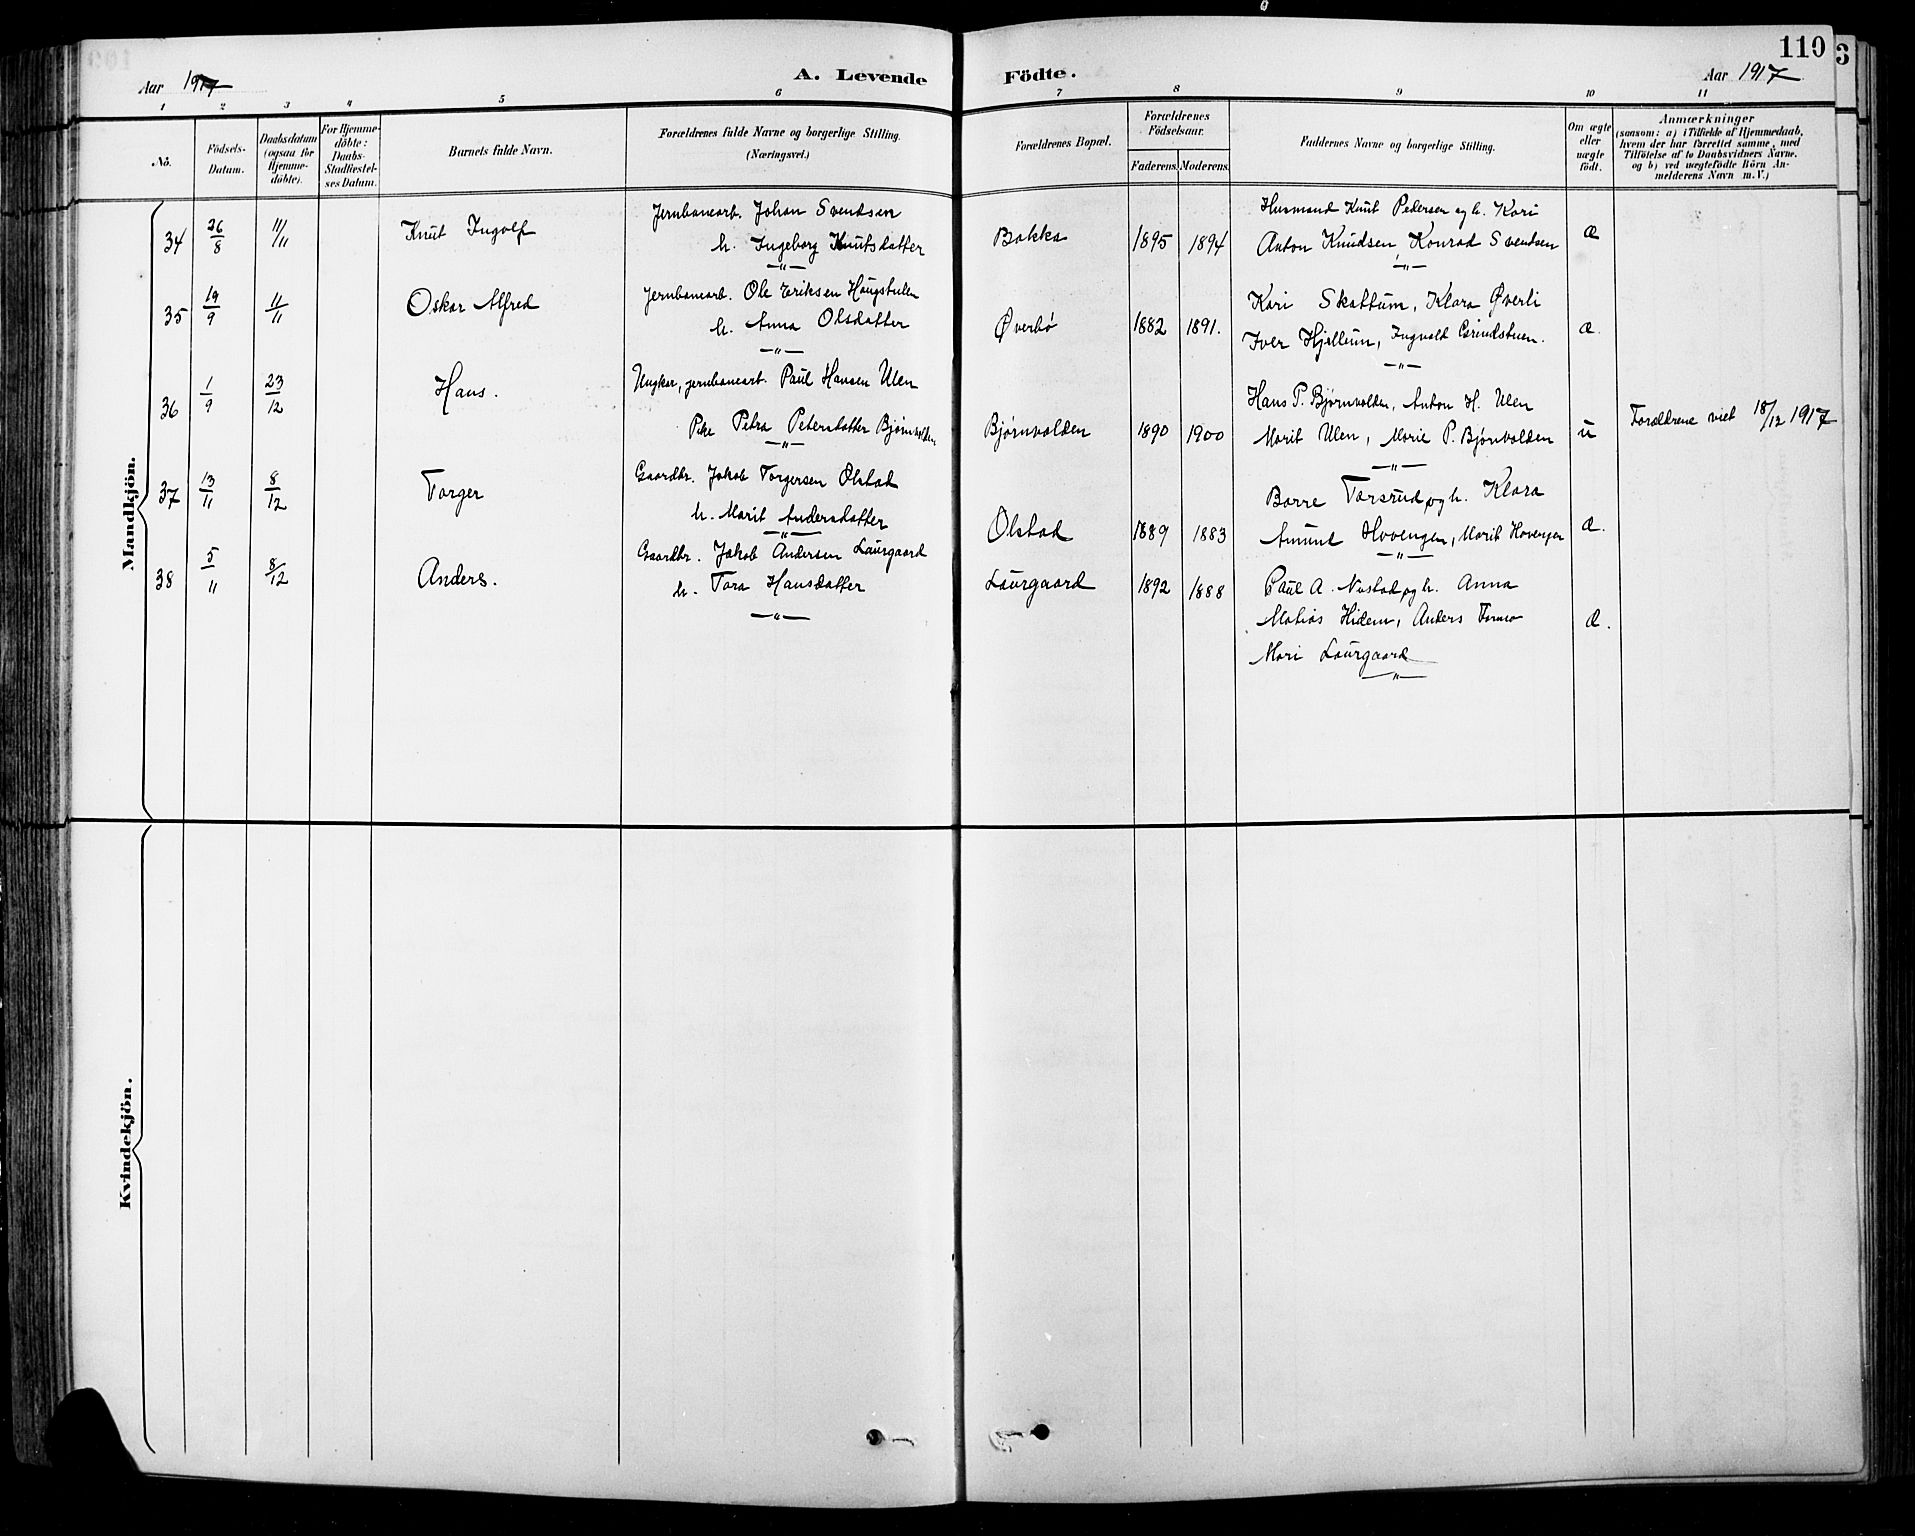 110
3
Aar 1917
A. Levende Födte.
Aar 1917
1 2 3 4 5 6 7 8 9 10 11
No.
Födsels-Datum.
Daabsdatum (ogsaa for Hjemme-döbte).
For Hjemme-döbte: Daabs-Stadfæstel-ses Datum.
Barnets fulde Navn.
Forældrenes fulde Navne og borgerlige Stilling.
(Næringsvei.)
Forældrenes Bopæl.
Forældrenes Födselsaar.
Faderens. Moderens.
Faddernes Navne og borgerlige Stilling.
Om ægte eller uægte födt.
Anmærkninger
(saasom: a) i Tilfælde af Hjemmedaab, hvem der har forrettet samme, med Tilföielse af to Daabsvidners Navne, og b) ved uægtefödte Börn An-melderens Navn m. V.)
Mandkjön.
34 26/8 11/11 Knut Ingolf Jernbanearb. Johan Svendsen
h. Ingeborg Knutsdatter Bakka 1895 1894
Husmand Knut Pedersen og h. Kari
Anton Knudsen, Konrad Svendsen æ
35 19/9 11/11 Oskar Alfred Jernbanearb. Ole Eriksen Haugstulen
h. Anna Olsdatter Øverbø 1882 1891.
Kari Skattum, Klara Øverli
Iver Hjellum, Ingvald æ.
36 1/9 23/12 Hans. Ungkar, jernbanearb. Paul Hansen Ulen
Pike Petra Petersdatter Bjørnvolden Bjørnvolden 1890 1900
Hans P. Bjørnvolden, Anton H. Ulen
Marit Ulen, Marie P. Bjørnvolden u Forældrene viet 18/12 1917
37 13/11 8/12 Torger Gaardbr. Jakob Torgersen Olstad
h. Marit Andersdatter Olstad 1889 1883
Borre Torsrud og h. Klara
Amund Hovengen, Marit Hovengen æ.
38 5/" 8/12 Anders. Gaardbr. Jakob Andersen Laurgaard
h. Tora Hansdatter Laurgaard 1892 1888
Paul A. Nustad og h. Anna
Matias Hidem, Anders Formo æ.
Mari Laurgaard
Kvindekjön.